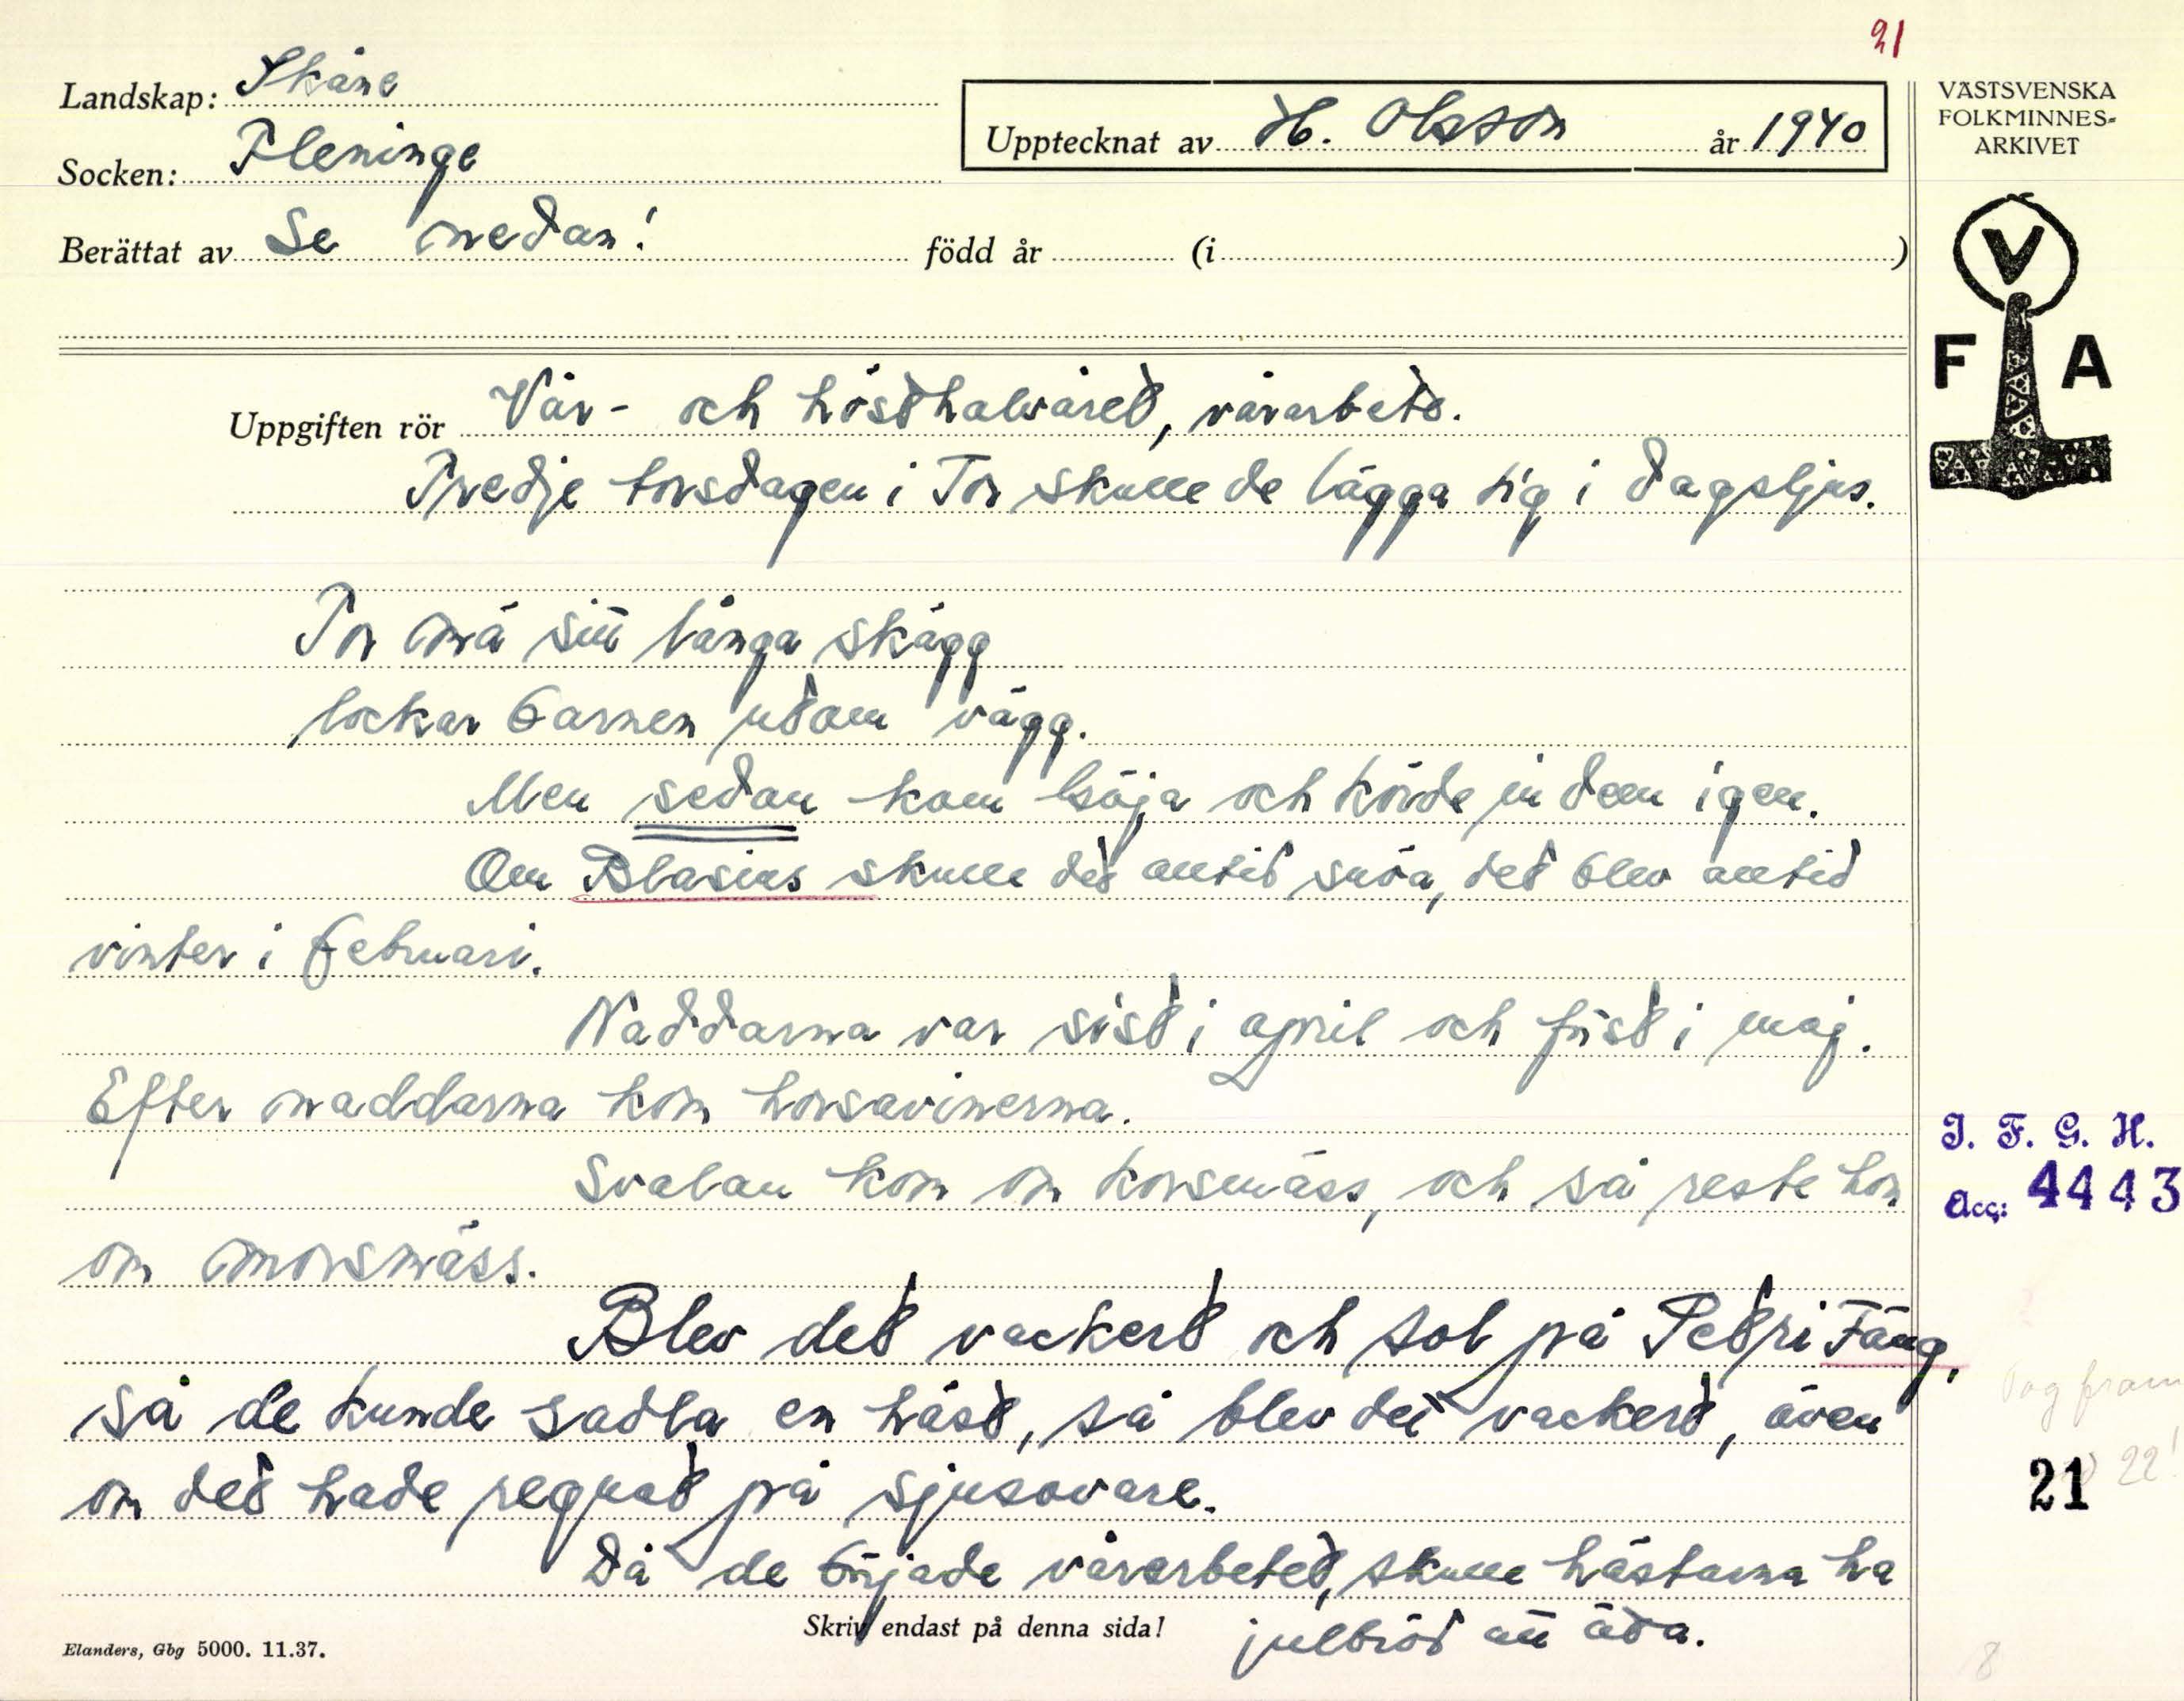 21
Landskap: Skåne
Socken: Fleninge
Upptecknat av H. Olsson år 1940
Berättat av Se nedan! född år (i )
VÄSTSVENSKA
FOLKMINNES-
ARKIVET
V
F A
Uppgiften rör Vår- och hösthalvåret, vårarbete.
Tredje torsdagen i Tor skulle de lägga sig i dagsljus.
Tor mä sitt långa skägg
lockar barnen utom vägg.
Men sedan kom Göja och körde in dem igen.
Om Blasius skulle det alltid snöa, det blev alltid
vinter i februari.
Naddarna var sist i april och först i maj.
Efter naddarna kom horsavinerna.
Svalan kom om korsmäss, och så reste hon
om morsmäss.
Blev det vackert och sol på Petri Fäng,
så de kunde sadla en häst, så blev det vackert, även
om det hade regnat på sjusovare.
Då de började vårarbetet, skulle hästarna ha
julbröd att äta.
Skriv endast på denna sida!
Elanders, Gbg 5000. 11.37.
I. F. G. H.
Acc: 4443
21
22!
8